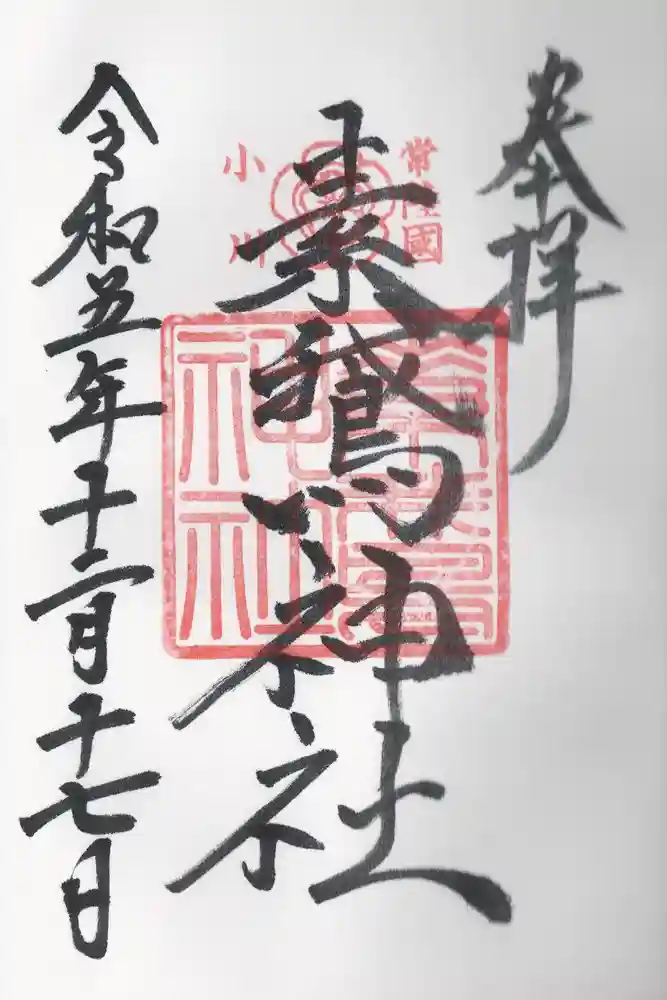 奉拝
常陸國
小川
素鵞神社
素鵞
神社
令和五年十二月十七日